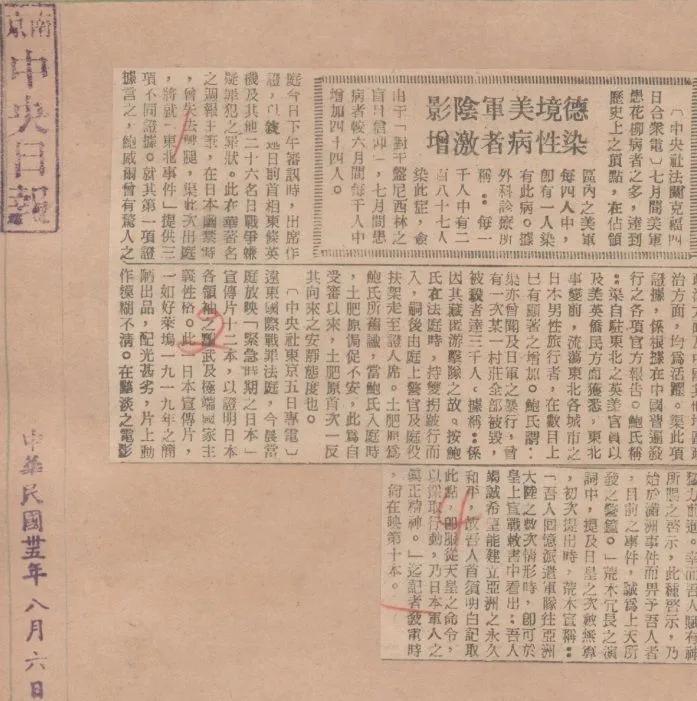 南京
中央日報
中華民國卅五年八月六日
德境美軍陰影
染性病者激增
〔中央社法蘭克福四
日合衆電〕七月間美軍
患花柳病者之多，達到
歷史上之頂點，在佔領
區內之美軍
每四人中，
即有一人染
有此病。據
外科診療所
稱：每一
千人中有二
百八十七人
染此症，僉
由于「對于盤尼西林之
盲目信仰」，七月間患
病者較六月間每千人中
增加四十四人。
庭今日下午審訊時，出席作
證，以 述日前首相東條英
機及其他二十六名日戰爭嫌
疑罪犯之罪狀。此在華著名
之週報主筆，在日本國禁時
，曾失去雙腿，渠此次出庭
，將就「東北事件」提供三
項不同證據。就其第一項證
據言之，鮑威爾曾有驚人之
治方面，均為活躍。渠此項
證據，係根據在中國普遍發
行之各項官方報告。鮑氏稱
：渠自駐東北之英美官員以
及美英僑民方面獲悉，東北
事變前，流蕩東北各城市之
日本男性旅行者，在數目上
已有顯著之增加。鮑氏謂：
渠亦曾聞及日軍之暴行，曾
有一次某一村莊全部被毀，
被戮者達三千人。據稱：係
因其藏匿游擊隊之故。按鮑
氏在法庭時，持雙拐跛行而
入，嗣後由庭上警官及庭役
扶架走至證人席。土肥原為
鮑氏所稔識，當鮑氏入庭時
，土肥原侷促不安，此為自
受審以來，土肥原首次一反
其向來之安靜態度也。
〔中央社東京五日專電〕
遠東國際戰罪法庭，今晨當
庭放映「緊急時期之日本」
宣傳片十二本，以證明日本
各領袖之黷武及極端國家主
義性格。此一日本宣傳片，
一如好萊塢一九一九年之簡
陋出品，配光甚劣，片上動
作模糊不清。在黯淡之電影
所賜之啓示，此種啓示，乃
始於滿洲事件而畀予吾人者
，目前之事件，誠為上天所
發之警鐘。」荒木冗長之演
詞中，提及日皇之次數無算
，初次提出時，荒木宣稱：
「吾人回憶派遣軍隊往亞洲
大陸之數次情形時，即可於
皇上宣戰敕書中看出：吾人
竭誠希望能建立亞洲之永久
和平，故吾人首須明白記取
此點，即服從天皇之命令，
以採取行動，乃日本軍人之
眞正精神。」迄記者發電時
，尙在映第十本。